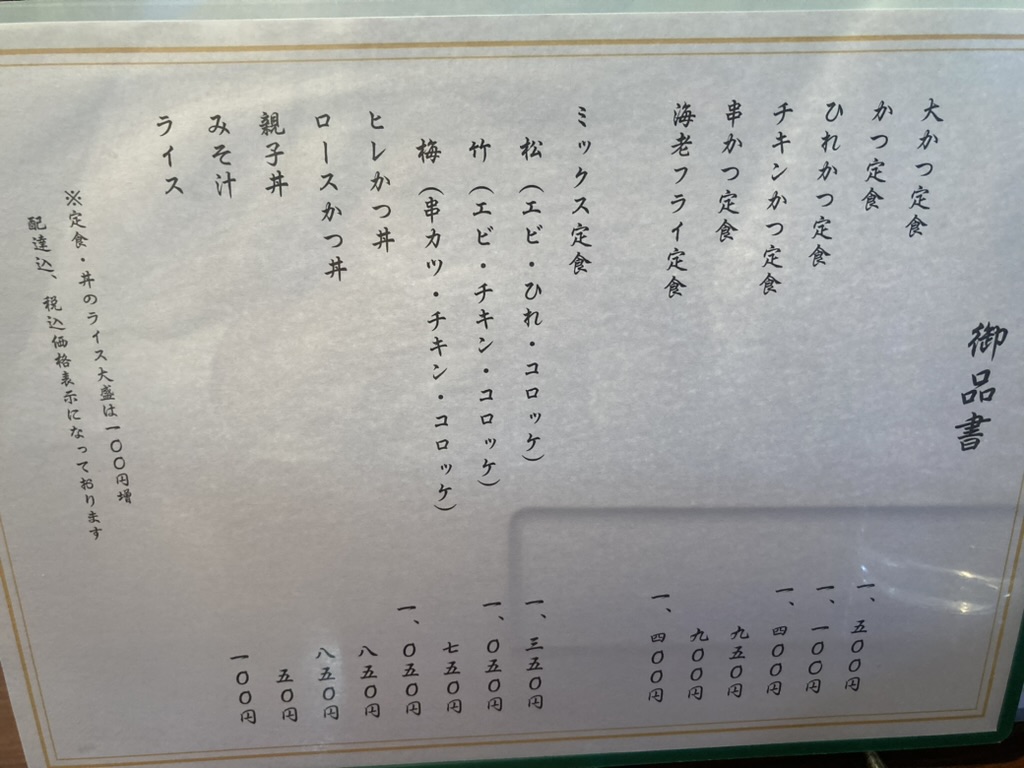 御品書
大かつ定食 一、五〇〇円
かつ定食 一、一〇〇円
ひれかつ定食 一、四〇〇円
チキンかつ定食 九五〇円
串かつ定食 九〇〇円
海老フライ定食 一、四〇〇円
ミックス定食
松（エビ・ひれ・コロッケ） 一、三五〇円
竹（エビ・チキン・コロッケ） 一、〇五〇円
梅（串カツ・チキン・コロッケ） 七五〇円
ヒレかつ丼 一、〇五〇円
ロースかつ丼 八五〇円
親子丼 八五〇円
みそ汁 五〇円
ライス 一〇〇円
※定食・丼のライス大盛は一〇〇円増
配達込、税込価格表示になっております